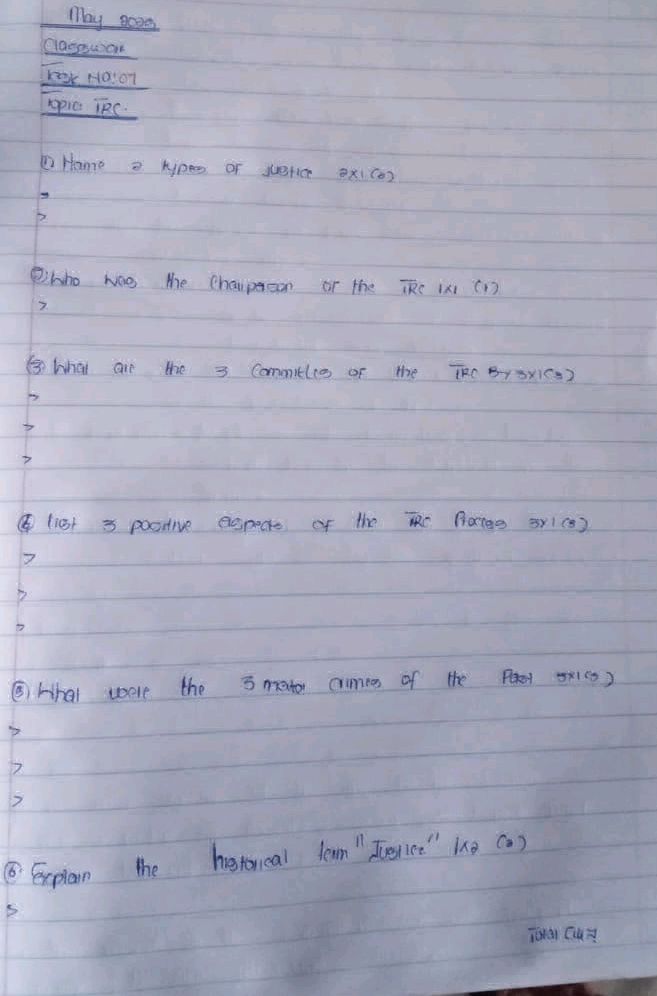 May
Classwork
Task No:07
Topic: TRC.
① Name 2 types of Justice 2x1 (2)
>
>
②Who was the Chairperson of the TRC 1x1 (1)
>
③ What are the 3 Committees of the TRC 3x1(3)
>
>
>
④ list 3 positive aspects of the TRC Process 3x1 (3)
>
>
>
⑤ What were the 3 major crimes of the Past 3x1(3)
>
>
>
⑥ Explain the historical term "Justice" 1x2 (2)
>
Total [14]